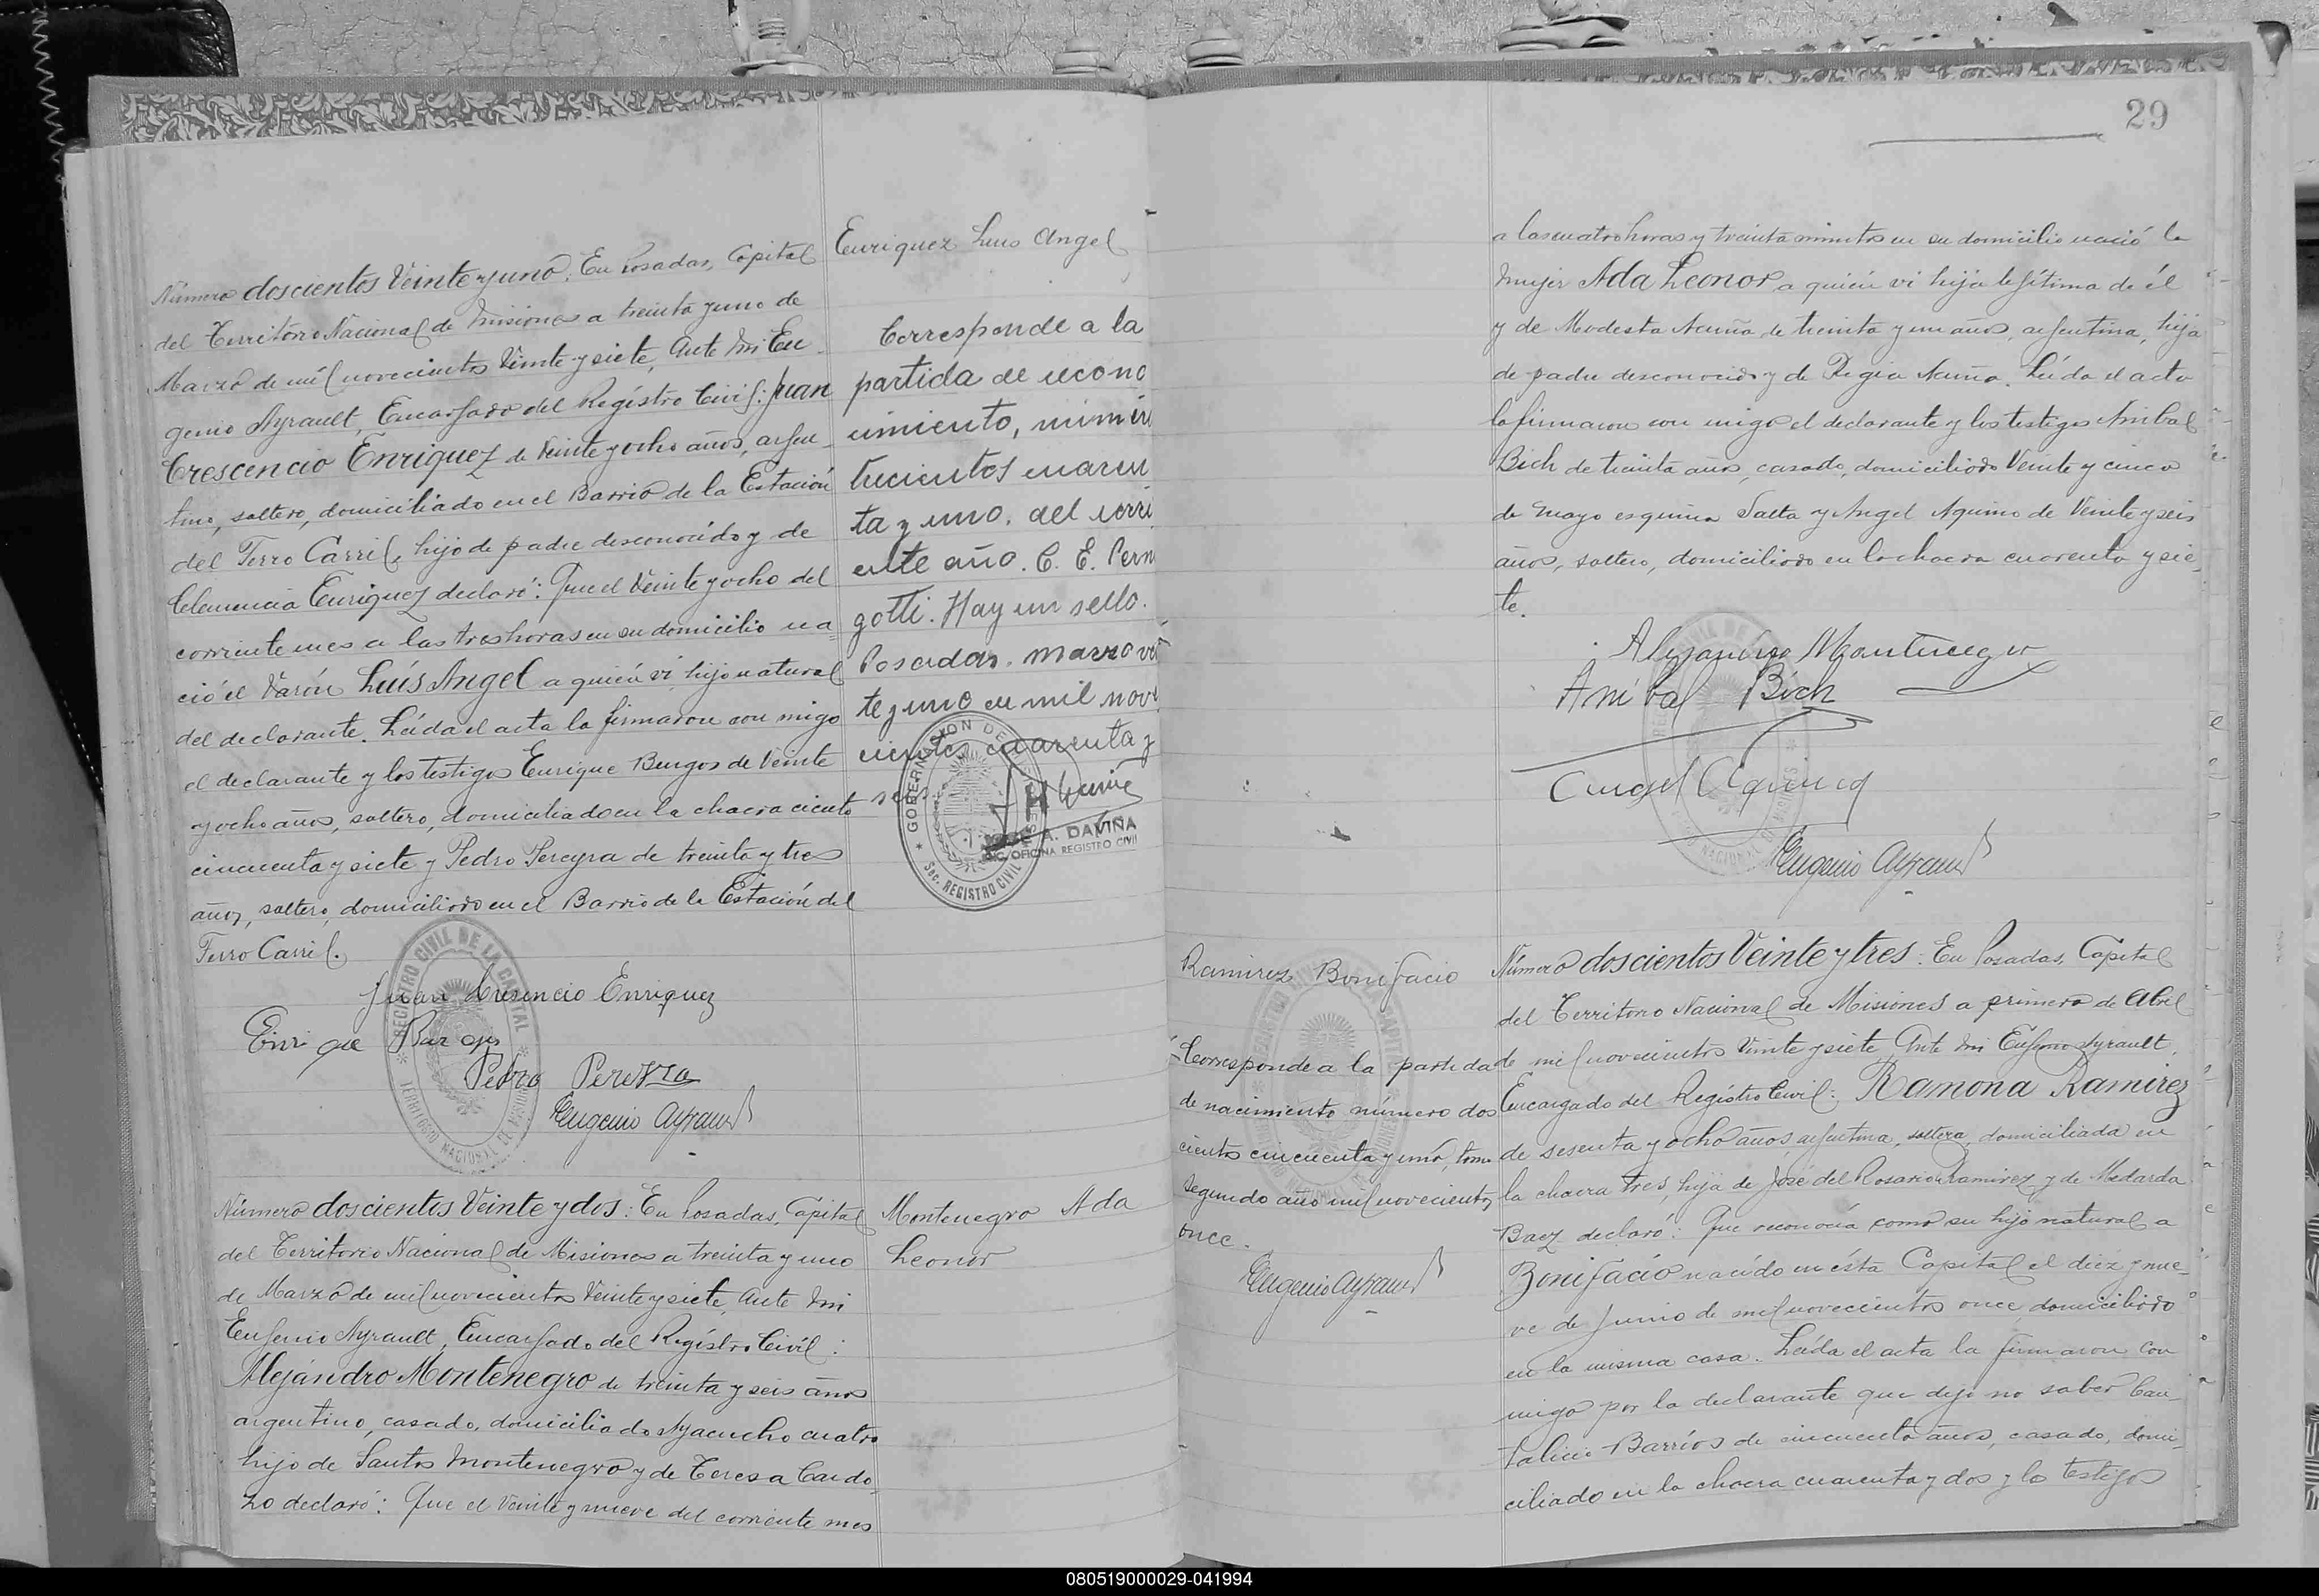 Número doscientos Veinte y uno: En Posadas, Capital
del Territorio Nacional de Misiones a treinta y uno de
Marzo de mil novecientos Veinte y siete, Ante mi Eu-
genio Ayrault, Encargado del Registro Civil: Juan
Crescencio Enriquez de Veinte y ocho años, argen-
tino, soltero, domiciliado en el Barrio de la Estación
del Ferro Carril, hijo de padre desconocido y de
Clemencia Enriquez declaró: Que el Veinte y ocho del
corriente mes a las tres horas en su domicilio na-
ció el Varón Luís Angel a quién vi, hijo natural
del declarante. Leída el acta la firmaron con migo
el declarante y los testigos Enrique Burgos de Veinte
y ocho años, soltero, domiciliado en la chacra ciento
cincuenta y siete y Pedro Pereyra de treinta y tres
años, soltero, domiciliado en el Barrio de la Estación del
Ferro Carril.
Juan Cresencio Enriquez
Enrique Burgos
Pedro Pereyra
Eugenio Ayrault
REGISTRO CIVIL DE LA CAPITAL
TERRITORIO NACIONAL DE MISIONES
Enriquez Luis Angel
Corresponde a la
partida de recono
cimiento, númer
trecientos cuaren
ta y uno, del corri
ente año. C. E. Pern
gotti. Hay un sello.
Posadas, marzo vei
te y uno en mil nove
cientos cuarenta y
seis
GOBERNACION DE MISIONES
Sec. REGISTRO CIVIL
A. DAVIÑA
OFICINA REGISTRO CIVIL
Número doscientos Veinte y dos: En Posadas, Capital
del Territorio Nacional de Misiones a treinta y uno
de Marzo de mil novecientos Veinte y siete, Ante mi
Eugenio Ayrault, Encargado del Registro Civil:
Alejándro Montenegro de treinta y seis años
argentino, casado, domiciliado Ayacucho cuatro
hijo de Santos Montenegro y de Teresa Cardo-
zo declaró: Que el Veinte y nueve del corriente mes
Montenegro Ada
Leonor
29
a las cuatro horas y treinta minutos en su domicilio nació la
mujer Ada Leonor a quién vi hija legítima de él
y de Modesta Acuña, de treinta y un años, argentina, hija
de padre desconocido y de Regia Acuña. Leída el acta
la firmaron con migo el declarante y los testigos Anibal
Bich de treinta años, casado, domiciliado Veinte y cinco
de Mayo esquina Salta y Angel Aquino de Veinte y seis
años, soltero, domiciliado en la chacra cuarenta y sie-
te.
Alejandro Montenegro
Anibal Bich
Angel Aquino
Eugenio Ayrault
Ramirez Bonifacio
Corresponde a la partida
de nacimiento número dos
cientos cincuenta y uno, tomo
segundo año mil novecientos
once.
Eugenio Ayrault
Número doscientos Veinte y tres: En Posadas, Capital
del Territorio Nacional de Misiones a primero de Abril
de mil novecientos Veinte y siete, Ante mi Eugenio Ayrault,
Encargado del Registro Civil: Ramona Ramirez
de sesenta y ocho años, argentina, soltera, domiciliada en
la chacra tres, hija de José del Rosario Ramirez y de Medarda
Baez declaró: Que reconocía como su hijo natural a
Bonifacio nacido en ésta Capital el diez y nue-
ve de Junio de mil novecientos once, domiciliado
en la misma casa. Leída el acta la firmaron con
migo por la declarante que dijo no saber Can-
talicio Barrios de cincuenta años, casado, domi-
ciliado en la chacra cuarenta y dos y los testigos
080519000029-041994